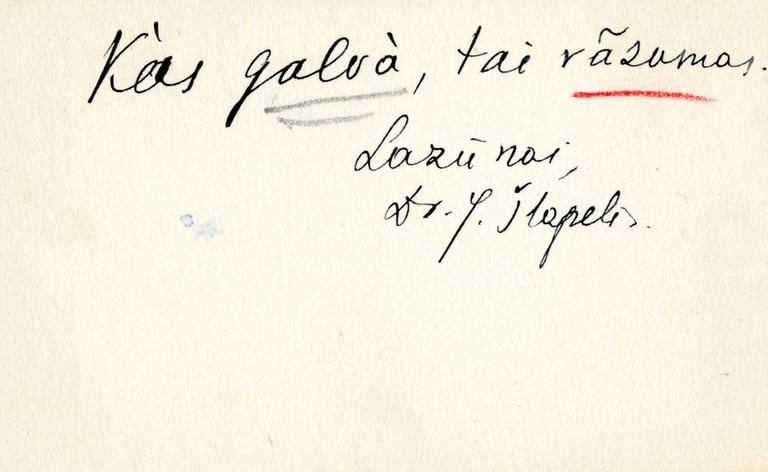 Kàs galvà, tai rãzumas.
Lazūnai,
Dr. J. Šlapelis.